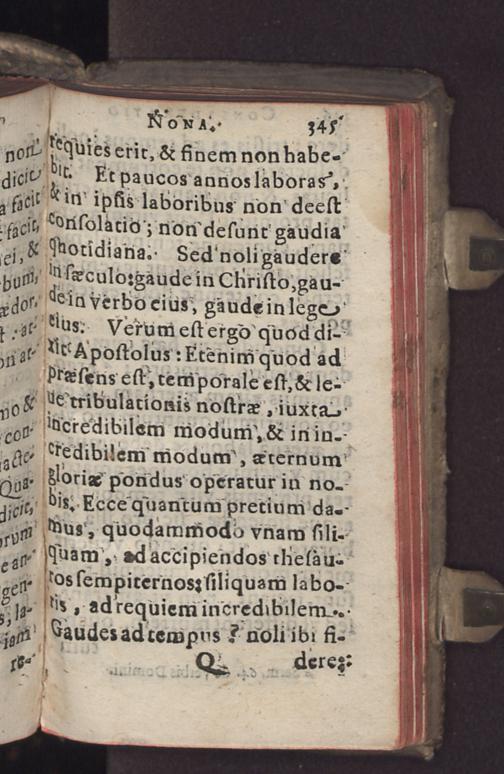 non
dicit
a facit
facit,
ei, &
bum,
ædor,
t: at-
on at-
mo &
con-
iacte-
Qua-
dicit,
orum
e an-
gen-
s, la-
iam
re-
NONA. 345
requies erit, & finem non habe-
bit. Et paucos annos laboras,
& in ipſis laboribus non deeſt
conſolatio; non deſunt gaudia
quotidiana. Sed noli gaudere
in ſæculo: gaude in Chriſto, gau-
de in verbo eius, gaude in lege
eius. Verum eſt ergo quod di-
xit Apoſtolus: Etenim quod ad
præſens eſt, temporale eſt, & le-
ue tribulationis noſtræ, iuxta
incredibilem modum, & in in-
credibilem modum, æternum
gloriæ pondus operatur in no-
bis. Ecce quantum pretium da-
mus, quodammodo vnam ſili-
quam, ad accipiendos theſau-
ros ſempiternos; ſiliquam labo-
ris, ad requiem incredibilem.
Gaudes ad tempus? noli ibi fi-
Q dere: